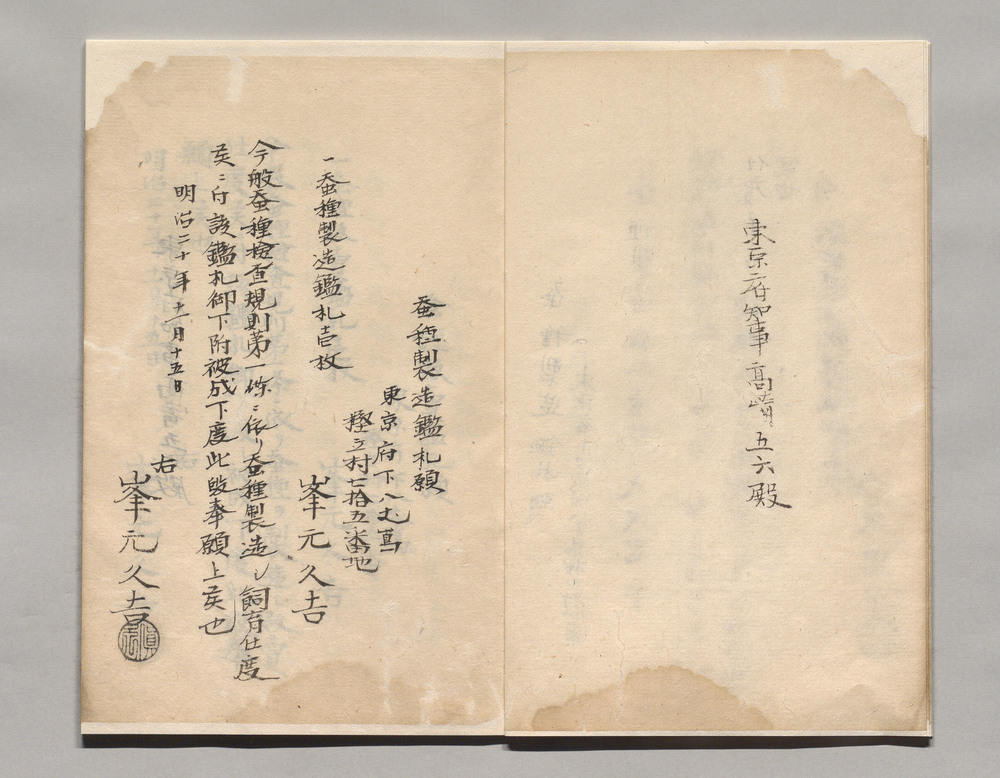 東京府知事高崎五六殿
蚕種製造鑑札願
東京府下八丈島
樫立村七拾五番地
峯元久吉
一蚕種製造鑑札壱枚
今般蚕種検査規則第一条ニ依リ蚕種製造シ飼育仕度
候ニ付該鑑札御下附被成下度此段奉願上候也
明治二十年十二月十五日
右
峯元久吉